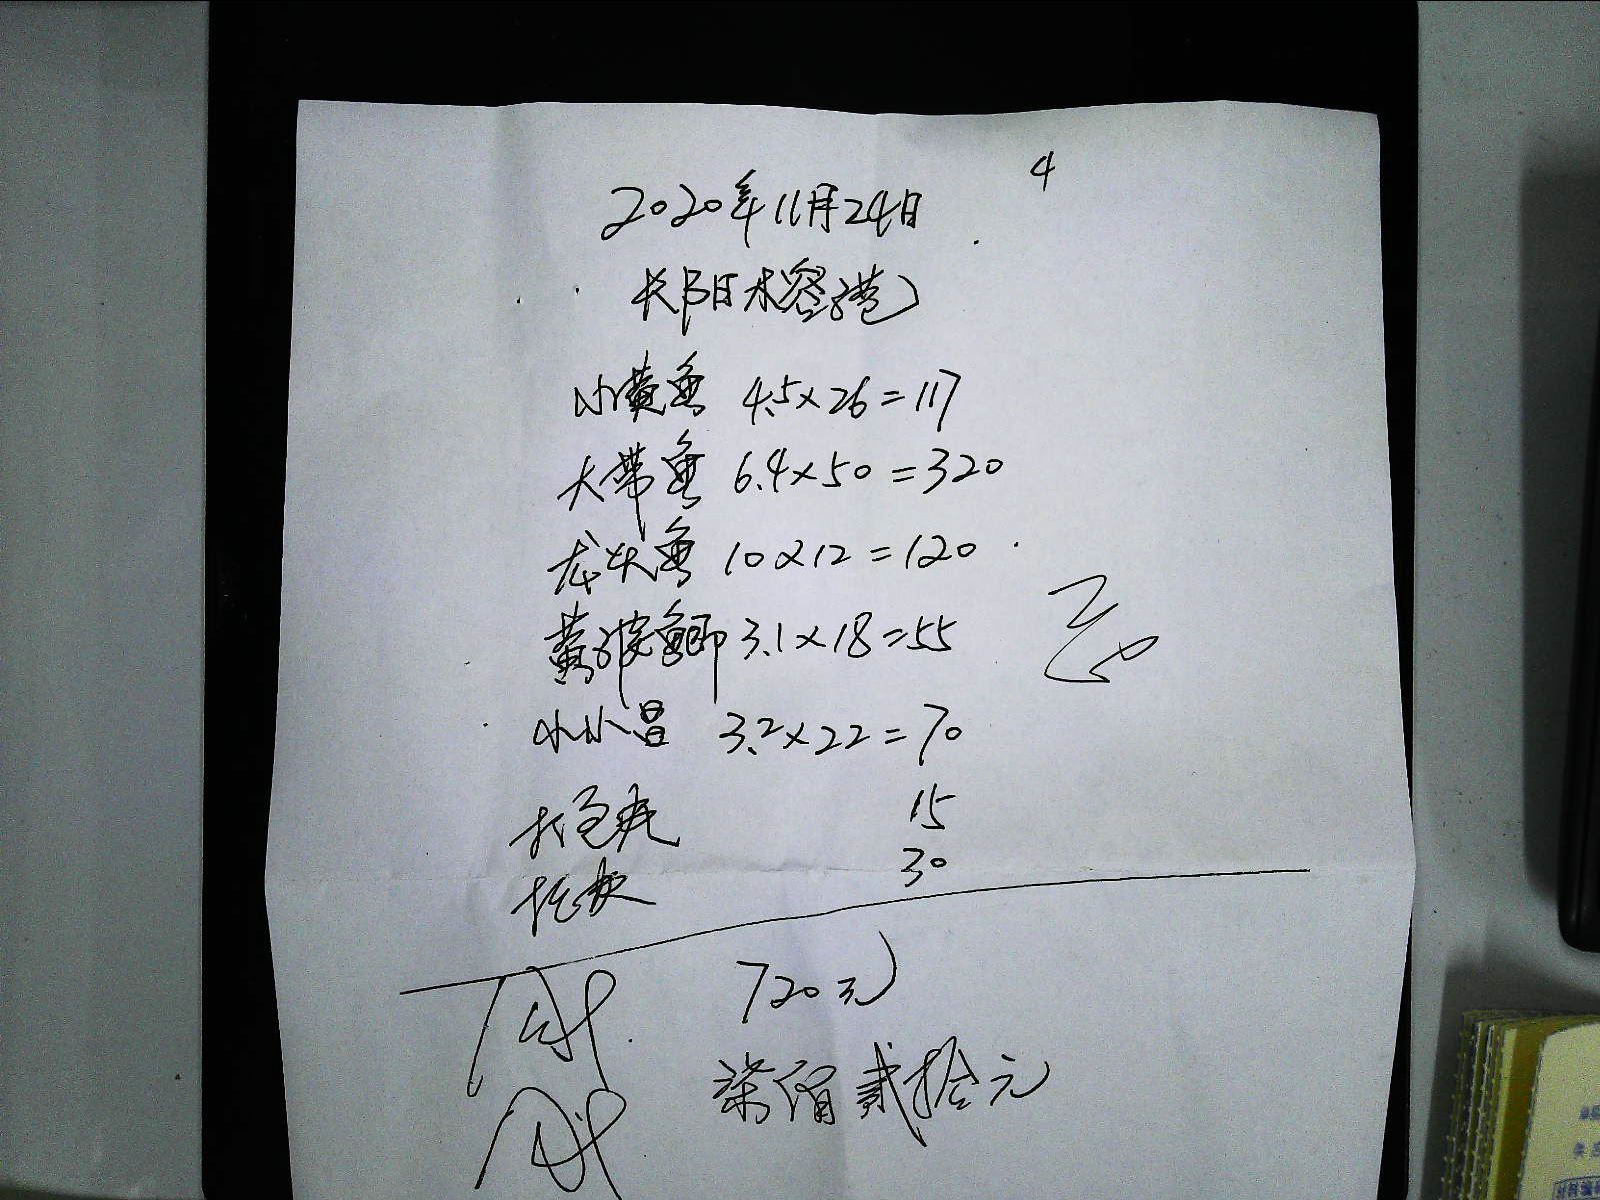 4
2020年11月24日
长阳水容港
小黄鱼 4.5×26=117
大带鱼 6.4×50=320
龙头鱼 10×12=120
黄婆鲫 3.1×18=55
小小昌 3.2×22=70
打包费 15
30
720元
柒佰贰拾元